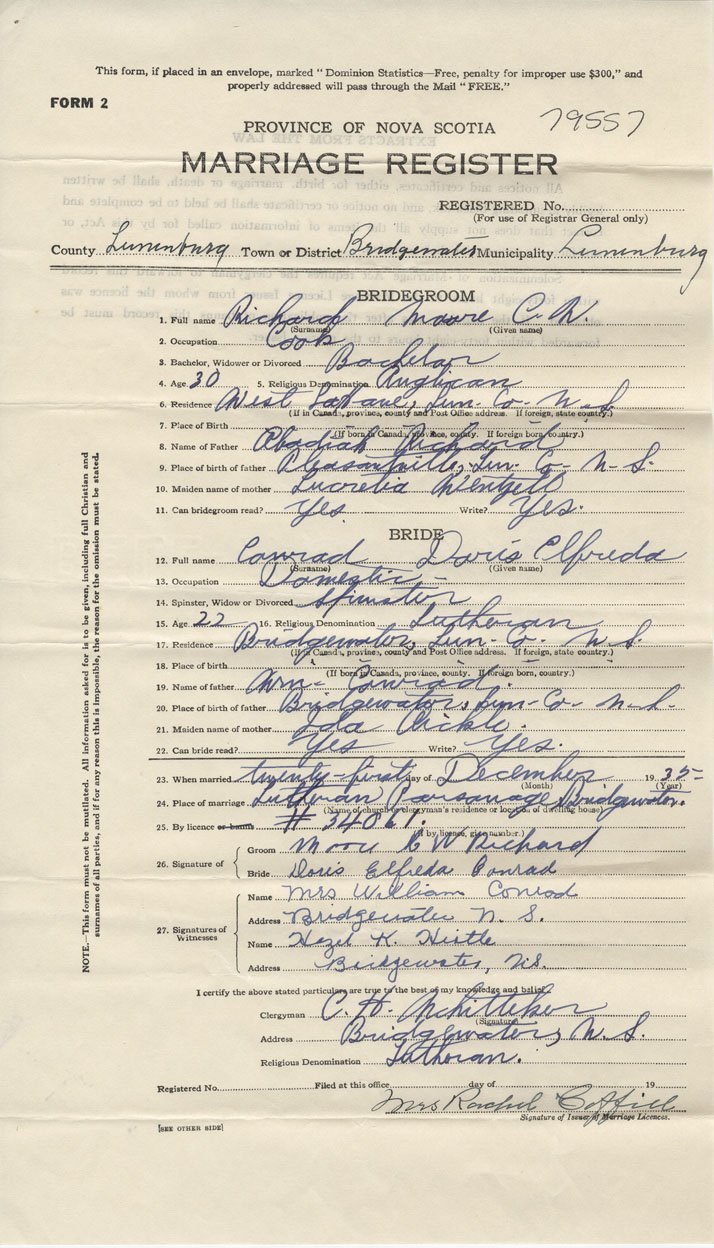 This form, if placed in an envelope, marked "Dominion Statistics—Free, penalty for improper use $300," and
properly addressed will pass through the Mail "FREE."
FORM 2
79557
PROVINCE OF NOVA SCOTIA
MARRIAGE REGISTER
REGISTERED No.
(For use of Registrar General only)
County Lunenburg Town or District Bridgewater Municipality Lunenburg
BRIDEGROOM
1. Full name Richard Moore C. W.
(Surname) (Given name)
2. Occupation Cook
3. Bachelor, Widower or Divorced Bachelor
4. Age 30 5. Religious Denomination Anglican
6. Residence West LaHave, Lun. Co. N.S.
(If in Canada, province, county and Post Office address. If foreign, state country.)
7. Place of Birth
(If born in Canada, province, county. If foreign born country.)
8. Name of Father Obadiah Richard
9. Place of birth of father Pleasantville, Lun. Co. N. S.
10. Maiden name of mother Lucretia Wentzell
11. Can bridegroom read? Yes Write? Yes.
BRIDE
12. Full name Conrad Doris Elfreda
(Surname) (Given name)
13. Occupation Domestic
14. Spinster, Widow or Divorced Spinster
15. Age 22 16. Religious Denomination Lutheran
17. Residence Bridgewater, Lun. Co. N. S.
(If in Canada, province, county and Post Office address. If foreign, state country.)
18. Place of birth
(If born in Canada, province, county. If foreign born, country.)
19. Name of father Wm. Conrad.
20. Place of birth of father Bridgewater, Lun. Co. N. S.
21. Maiden name of mother Ida
22. Can bride read? Yes Write? Yes.
23. When married twenty-first day of December 1935
(Month) (Year)
24. Place of marriage Lutheran Parsonage, Bridgewater.
(Name of church or clergyman's residence or location of dwelling house)
25. By licence or banns # 34061.
(If by license, give number.)
26. Signature of
Groom Moore C W Richard
Bride Doris Elfreda Conrad
27. Signatures of Witnesses
Name Mrs William Conrod
Address Bridgewater N. S.
Name Hazel K. Hirtle
Address Bridgewater, N.S.
I certify the above stated particulars are true to the best of my knowledge and belief.
Clergyman C. H. Whitteker
(Signature)
Address Bridgewater, N. S.
Religious Denomination Lutheran.
Registered No. Filed at this office day of 19
Mrs Rachel
Signature of Issuer of Marriage Licences.
[SEE OTHER SIDE]
NOTE.—This form must not be mutilated. All information asked for is to be given, including full Christian and
surnames of all parties, and if for any reason this is impossible, the reason for the omission must be stated.